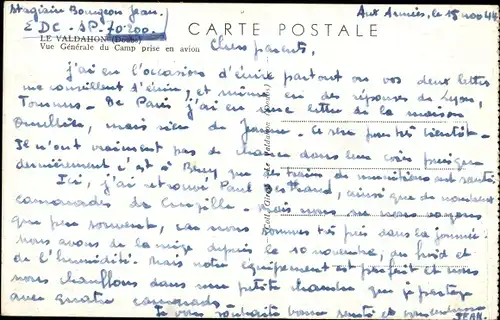 Stagiaire Bourgeon Jean.
2 DC - SP. 70200.
CARTE POSTALE
Aux Armées, le 15 nov 44
LE VALDAHON (Doubs)
Vue Générale du Camp prise en avion
Chers parents,
J'ai eu l'occasion d'écrire partout où vos deux lettres
me conseillent d'écrire, et même eu des réponses de Lyon,
Tournus. De Paris j'ai eu une lettre de la maison
mais rien de Ce sera pour très bientôt.
Il n'ont vraiment pas de chance dans leur coin puisque
dernièrement c'est à Bercy que des trains de munitions ont sauté
Ici, j'ai retrouvé Paul ainsi que de nombreux
camarades de Mais nous ne nous voyons
que peu souvent, car nous sommes très pris dans la journée
Nous avons de la neige depuis le 10 novembre, du froid et
de l'humidité. Mais notre équipement est parfait et nous
nous chauffons dans une petite chambre que je partage
avec quatre camarades.
Je vous souhaite bonne santé et vous embrasse
JEAN.